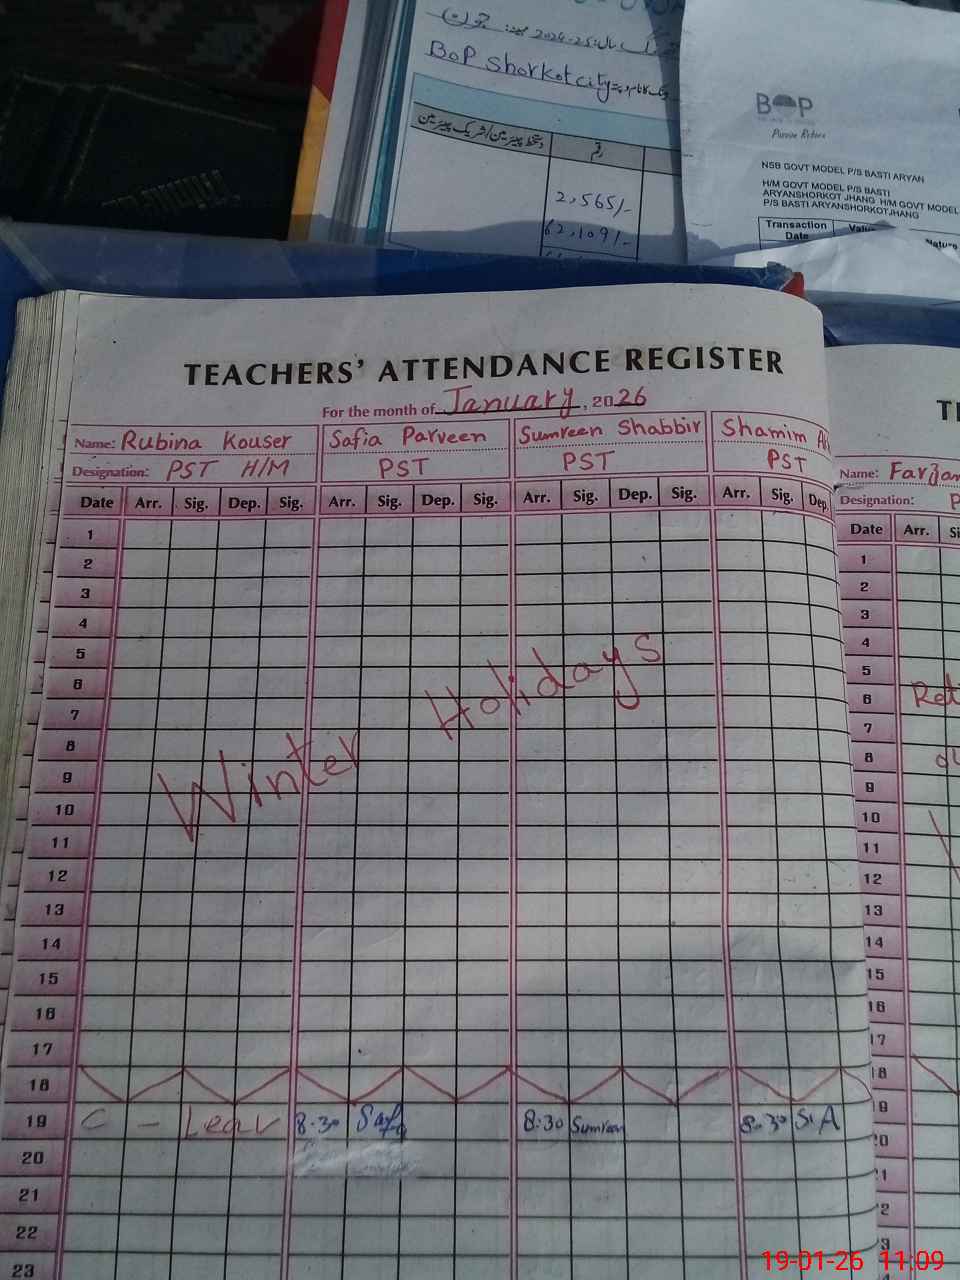 جون
2024-25
BOP Shorkot city
دستخط چیئرمین/شریک چیئرمین
رقم
2,565/-
62,109/-
BOP
NSB GOVT MODEL P/S BASTI ARYAN
H/M GOVT MODEL P/S BASTI
ARYANSHORKOT JHANG H/M GOVT MODEL
P/S BASTI ARYANSHORKOTJHANG
Transaction Date Nature
TEACHERS' ATTENDANCE REGISTER
For the month of January, 2026
Name: Rubina Kouser Safia Parveen Sumreen Shabbir Shamim
Designation: PST H/M PST PST PST
Date Arr. Sig. Dep. Sig. Arr. Sig. Dep. Sig. Arr. Sig. Dep. Sig. Arr. Sig. Dep.
1
2
3
4
5
6
7
8
9
10
11
12
13
14
15
16
17
18
19 C - Leav 8:30 Saf 8:30 Sumreen 8:30 S.A
20
21
22
23
Winter Holidays
Name: Farzan
Designation: P
Date Arr. Si
1
2
3
4
5
6 Ret
7
8
9
10
11
12
13
14
15
16
17
18
19
20
21
22
23
19-01-26 11:09